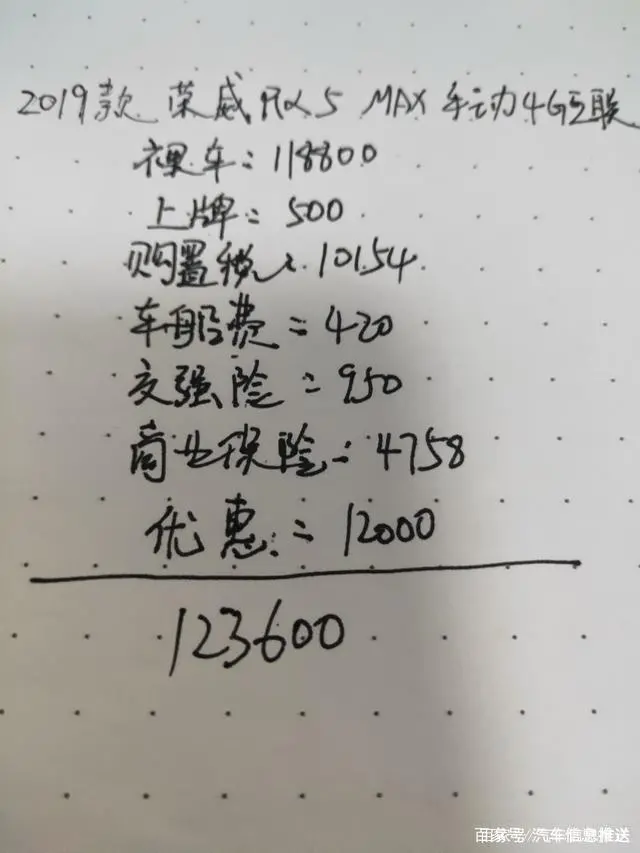 2019款 荣威RX5 MAX手动4G互联
裸车:118800
上牌:500
购置税:10154
车船费:420
交强险:950
商业保险:4758
优惠:12000
123600
百家号/汽车信息推送